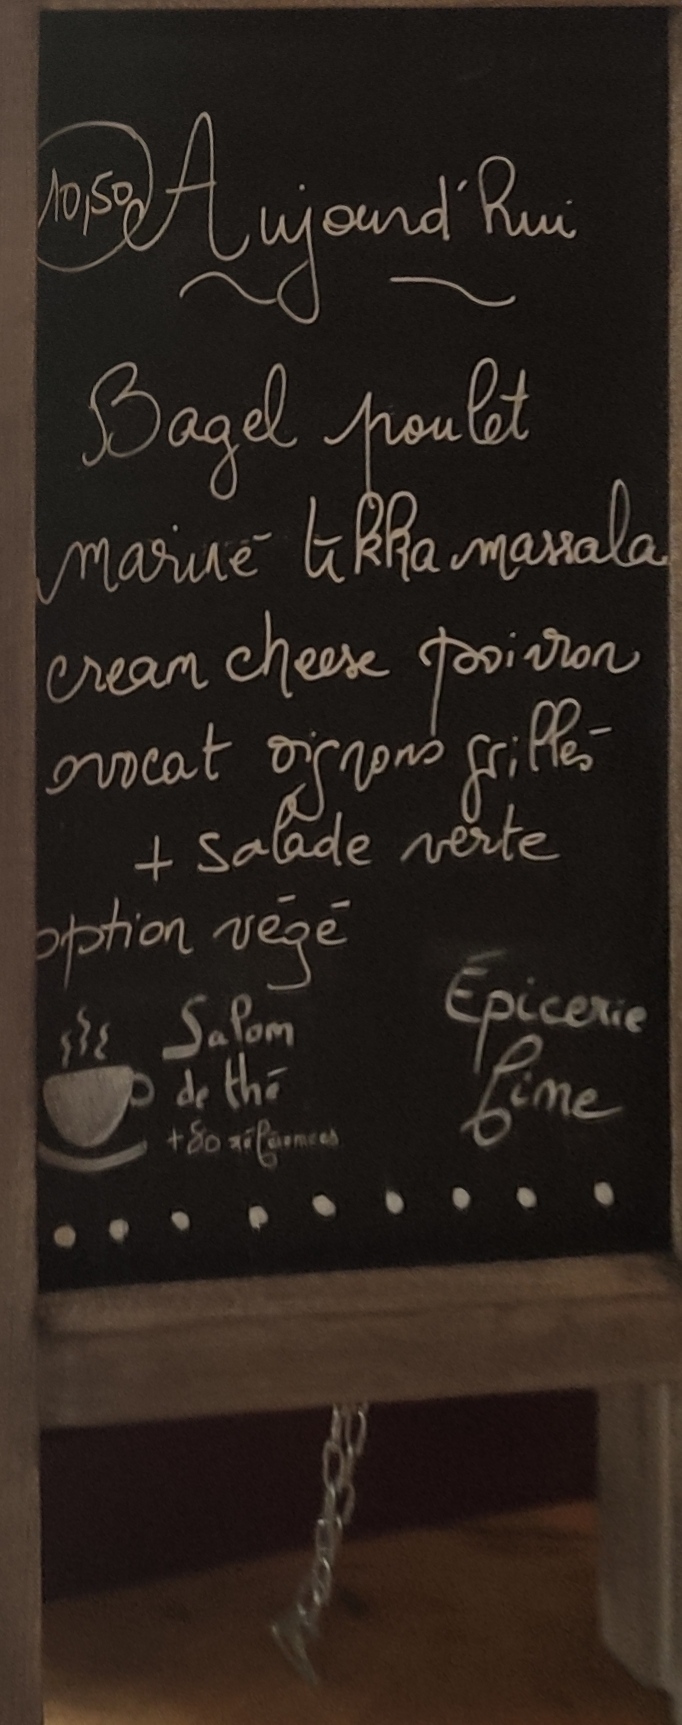 10,50
Aujourd'hui
Bagel poulet
mariné tikka massala
cream cheese poivron
avocat oignons grillés
+ salade verte
option végé
Salon
de thé
+80 références
Épicerie
fine